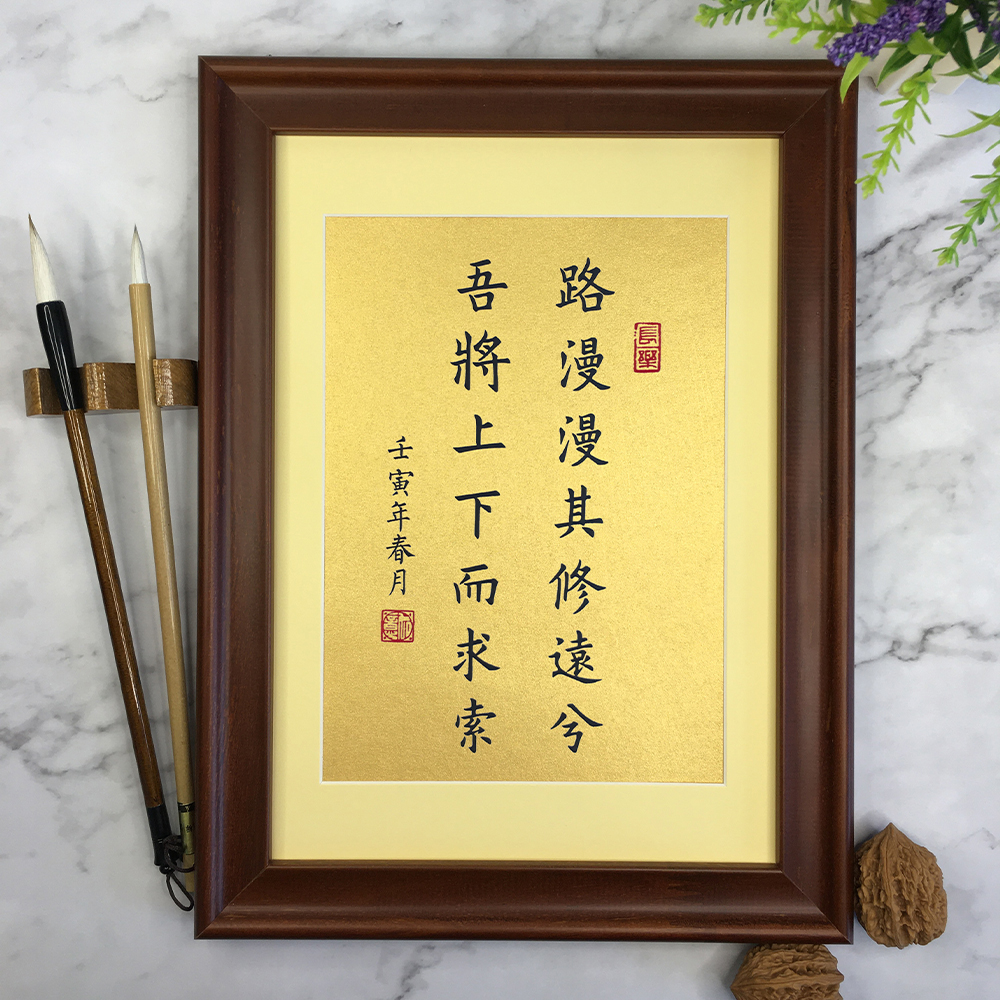 長樂
路漫漫其修遠兮
吾將上下而求索
壬寅年春月